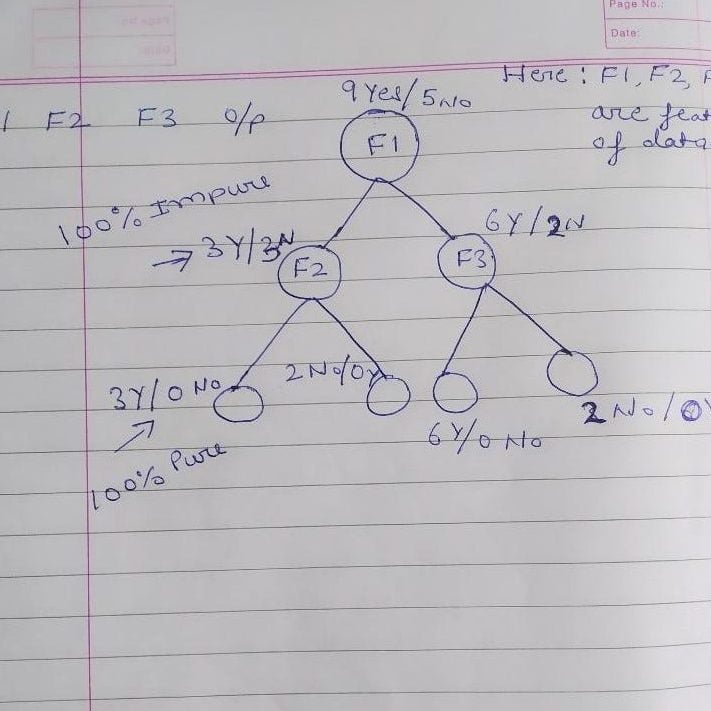 Page No.:
Date:
Here : F1, F2, F
are feat
of data
1 F2 F3 o/p
9 Yes/ 5 No
F1
100% Impure
→ 3Y/3N
F2
6Y/2N
F3
3Y/0 No
2 No/0Y
6Y/0 No
2 No/0Y
100% Pure